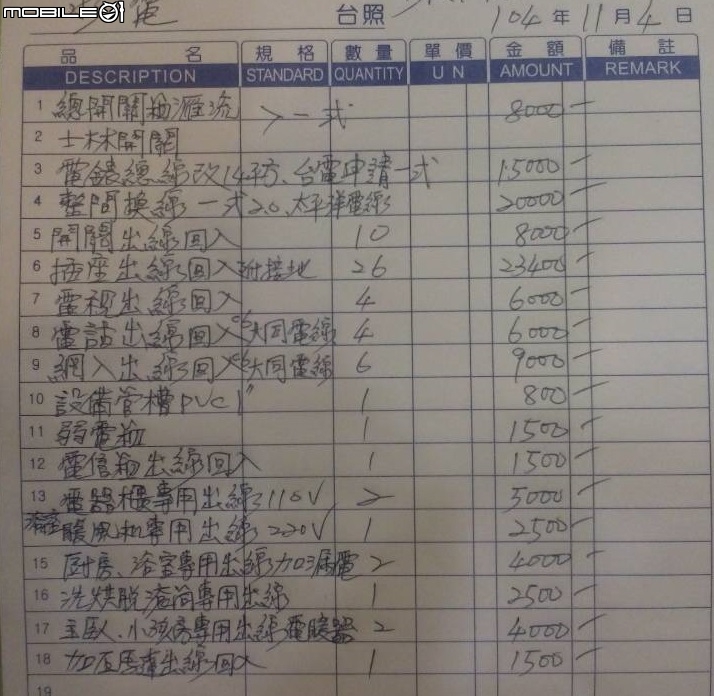 mobile01
台照 104年 11月 4日
品名 規格 數量 單價 金額 備註
DESCRIPTION STANDARD QUANTITY U N AMOUNT REMARK
1 總開關箱滙流 >一式 8000-
2 士林開關
3 電錶總線改14平方、台電申請一式 15000-
4 整間換線一式2.0、太平洋電線 20000-
5 開關出線回入 10 8000-
6 插座出線回入附接地 26 23400-
7 電視出線回入 4 6000-
8 電話出線回入c6大同電線 4 6000-
9 網入出線回入c6大同電線 6 9000-
10 設備管槽PVC1" 1 800-
11 弱電箱 1 1500-
12 電信箱出線回入 1 1500-
13 電器櫃專用出線110V 2 5000-
浴室暖風机專用出線220V 1 2500-
15 厨房、浴室專用出線加漏電 2 4000-
16 洗烘脫滾筒專用出線 1 2500-
17 主臥、小孩房專用出線電暖器 2 4000-
18 加压馬達出線回入 1 1500-
19